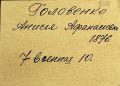 Головенко
Анисия Афанасиевн
1876.
7 воення 10.